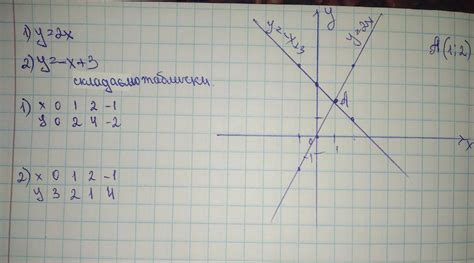 1) y=2x
2) y=-x+3
складаємо таблички.
1) x 0 1 2 -1
y 0 2 4 -2
2) x 0 1 2 -1
y 3 2 1 4
y
y=-x+3
y=2x
A(1;2)
A
x
0
1
-1